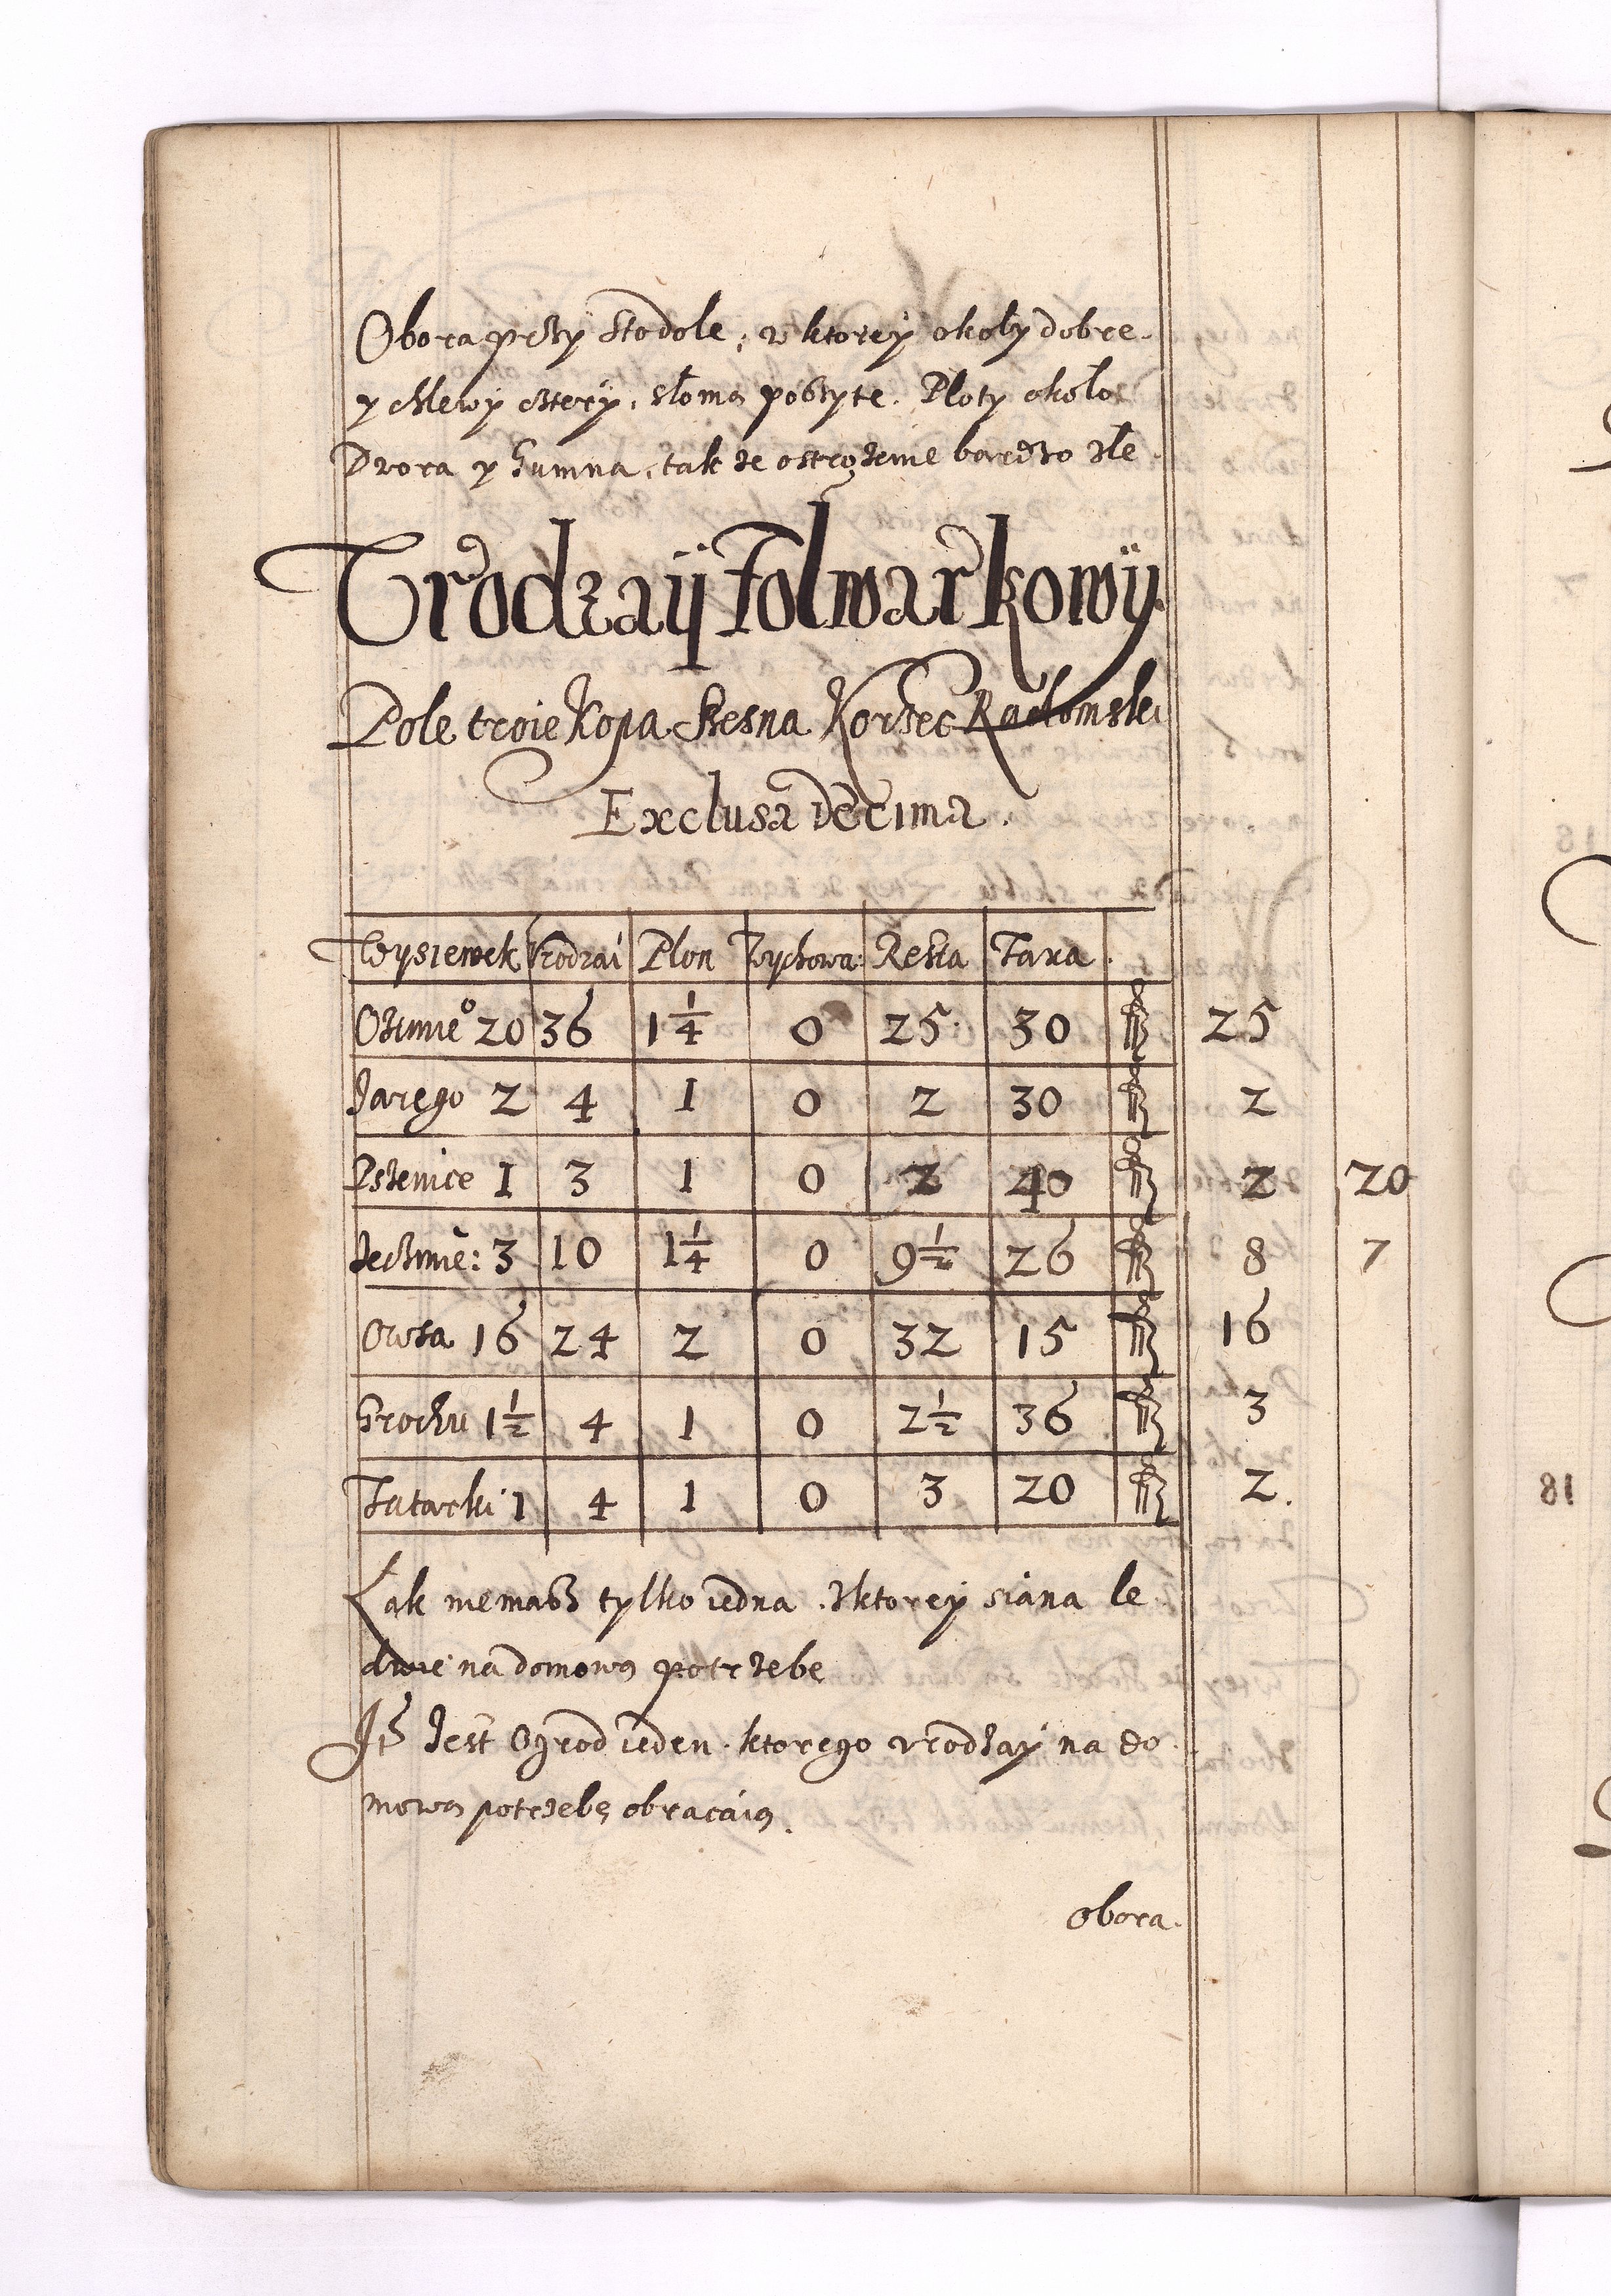 Obora przy stodole, w ktorey okoły dobre
y chlewy cztery, słomą poszyte. Płoty około
Dwora y Gumna, tak ze ostrożenie bardzo złe
Vrodzaÿ Folwarkowÿ
Pole troie Kopa Szesna Korzec Radomski
Exclusa Decima.
Wysiewek Vrodzai Plon Wychowa: Resta Taxa.
Ozimie° 20 36 1 1/4 0 25 30 25
Jarego 2 4 1 0 2 30 2
Pszenice 1 3 1 0 2 40 2 20
Jeczmie: 3 10 1 1/4 0 9 1/2 26 8 7
Owsa 16 24 2 0 32 15 16
Grochu 1 1/2 4 1 0 2 1/2 36 3
Tatarki 1 4 1 0 3 20 2.
Łąk niemasz tylko iedna. z ktorey siana le
dwie na domową potrzebe
Jest Ogrod ieden. ktorego vrodzay na do
mową potrzebę obracaią.
obora.
81